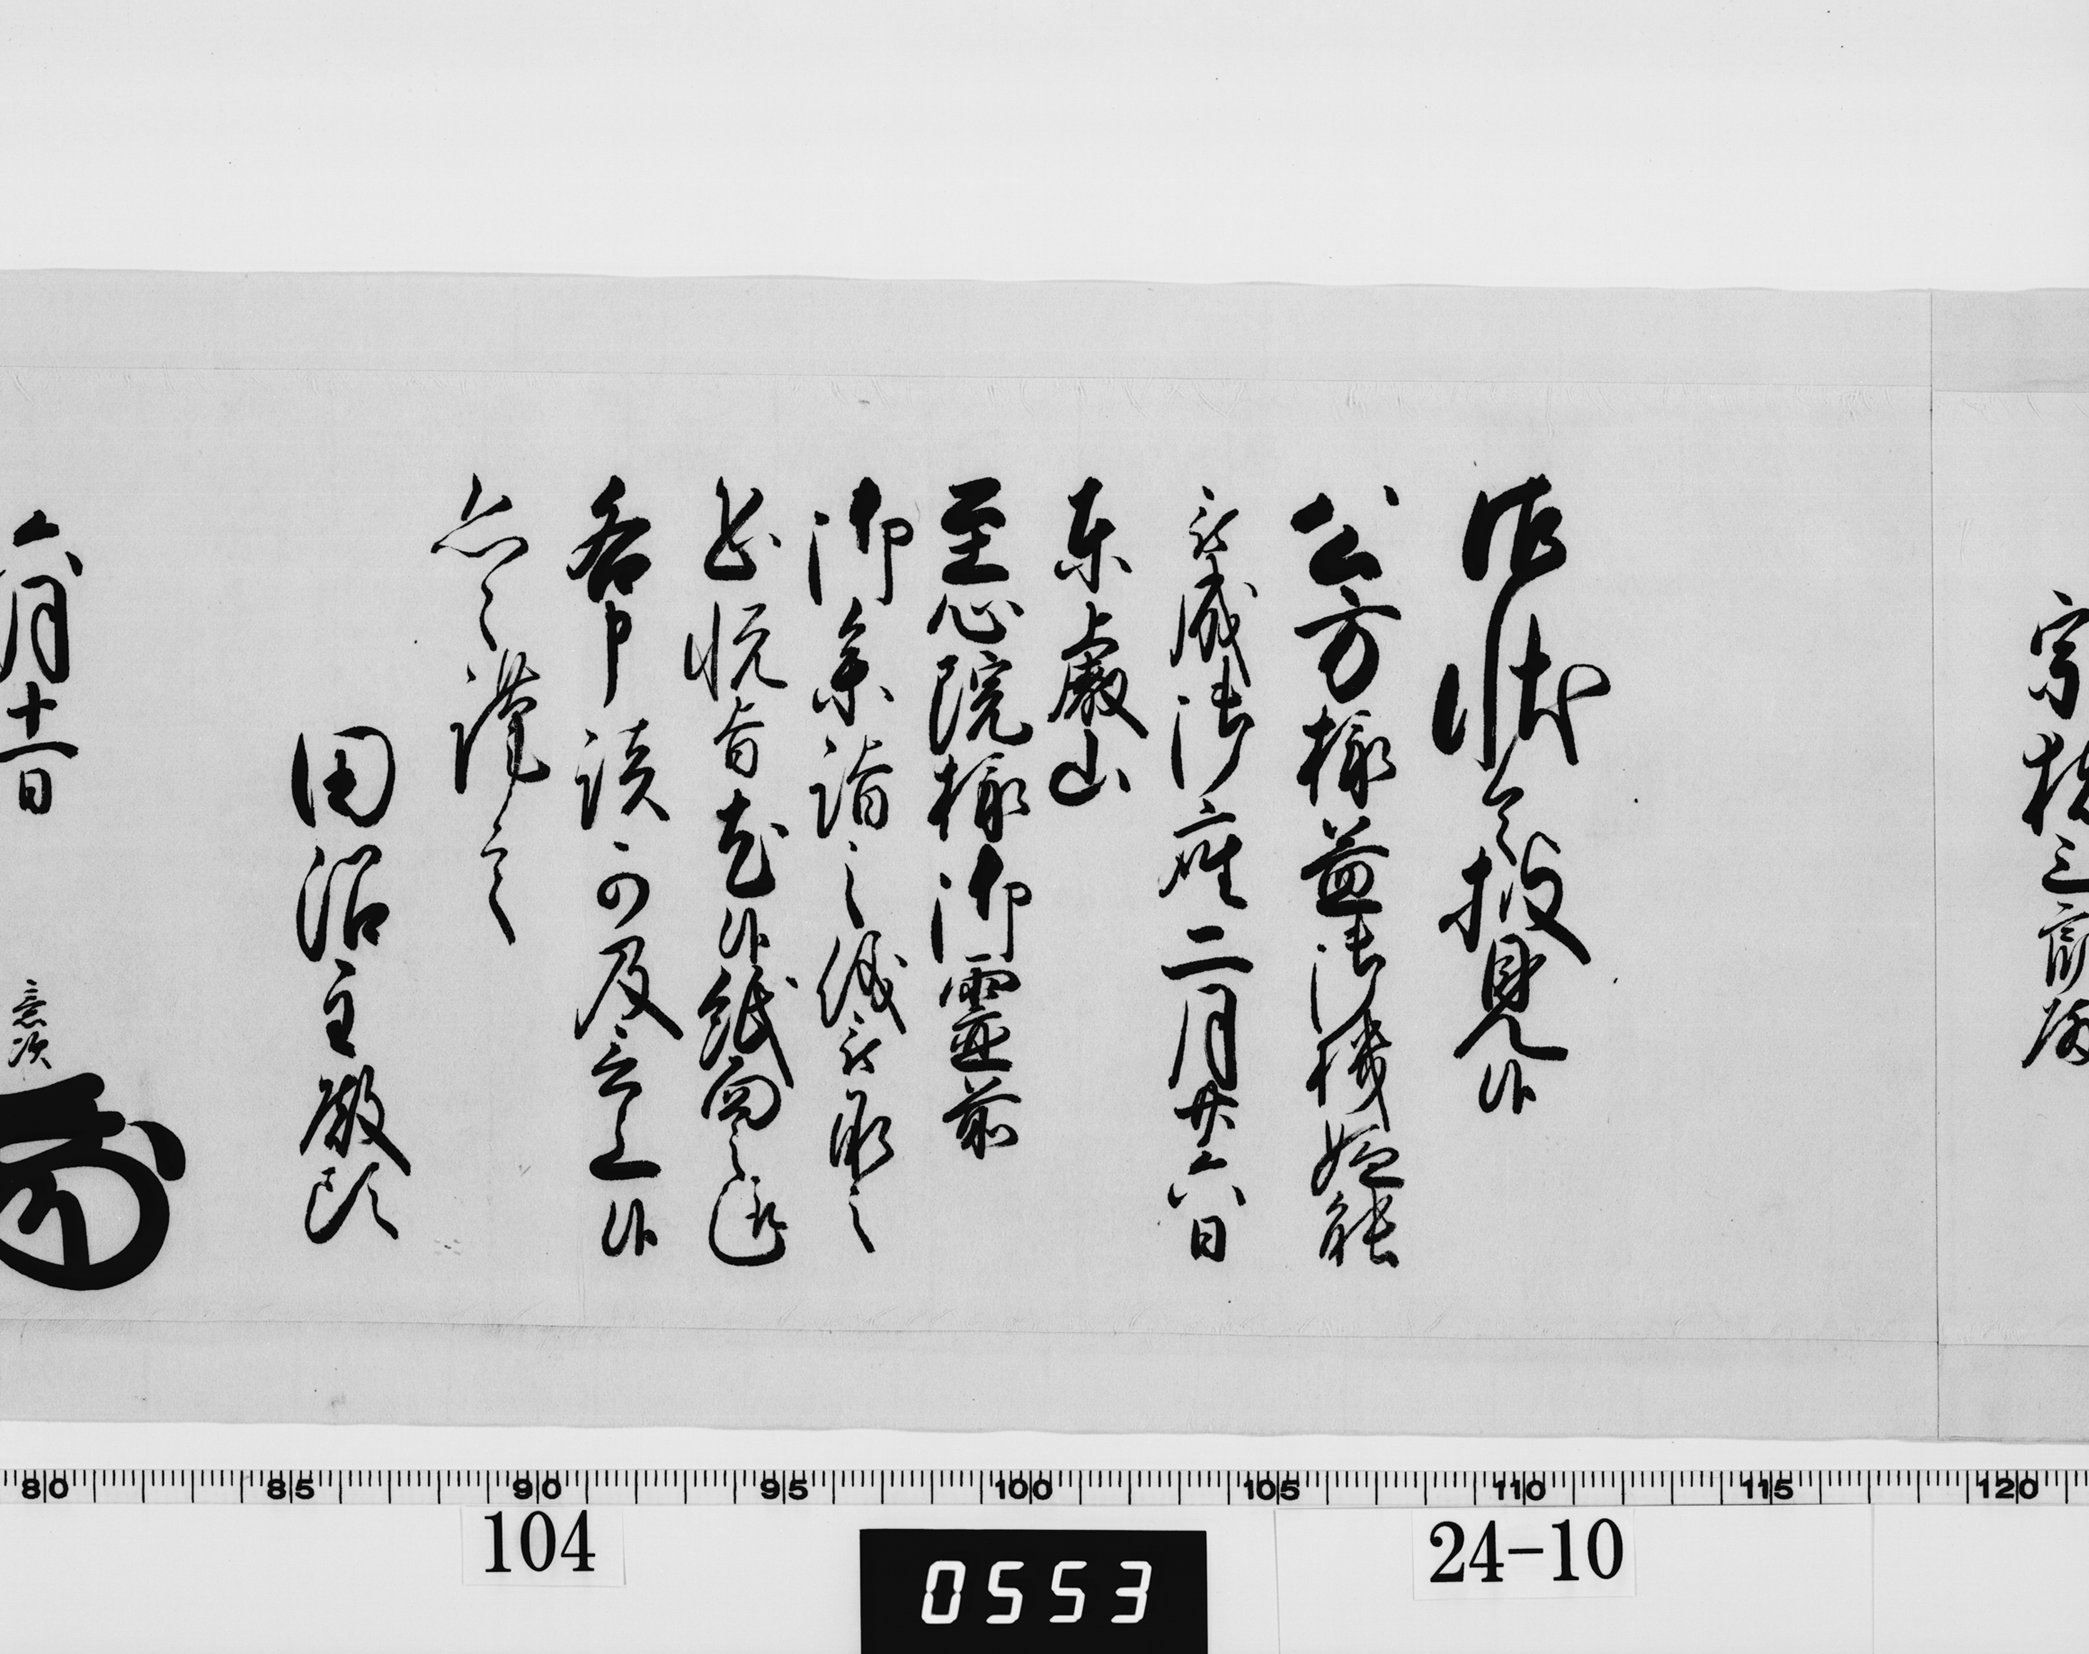 宗 対馬守殿
御状令披見候
公方様益御機嫌能
被成御座二月廿六日
東叡山
至心院様御霊前
御参詣之儀被承之
恐悦旨尤候紙面之通
各申談可及言上候
恐々謹言
田沼主殿頭
六月十一日
意次
80 85 90 95 100 105 110 115 120
104
0553
24-10